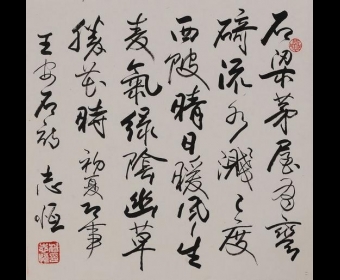 石梁茅屋有彎
碕流水濺〻度
西陂晴日暖風生
麦氣緑陰幽草
勝花時 初夏即事
王安石詩 志恒